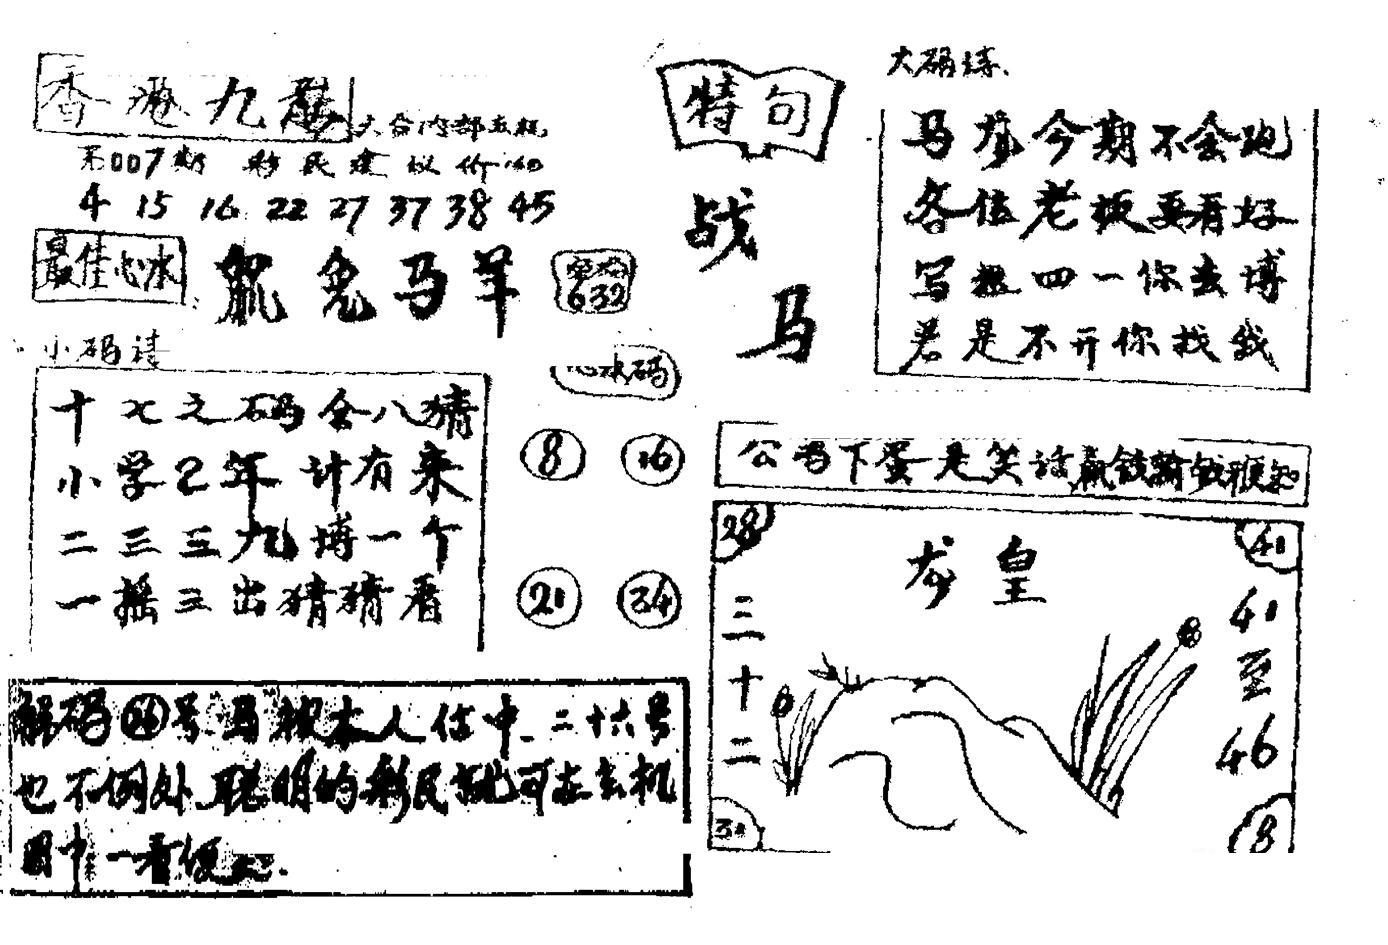 香港九龍
六合内部玄机
第007期 彩民建议价:
4 15 16 22 27 37 38 45
最佳心水
鼠兔马羊
632
小码诗
十 之码合八猜
小学2年计有来
二三三九博一个
一摇三出猜猜看
心水码
8 16
21 34
解码 号马被本人估中.二十六号
也不例外.聪明的彩民就可在玄机
图中一看便知.
特句
战马
大码诗.
马 今期不会跑
各位老板要看好
写 四一你去博
若是不开你找我
公鸡下蛋是笑话赢钱输钱
28 41
龙皇
三十二
41至46
8